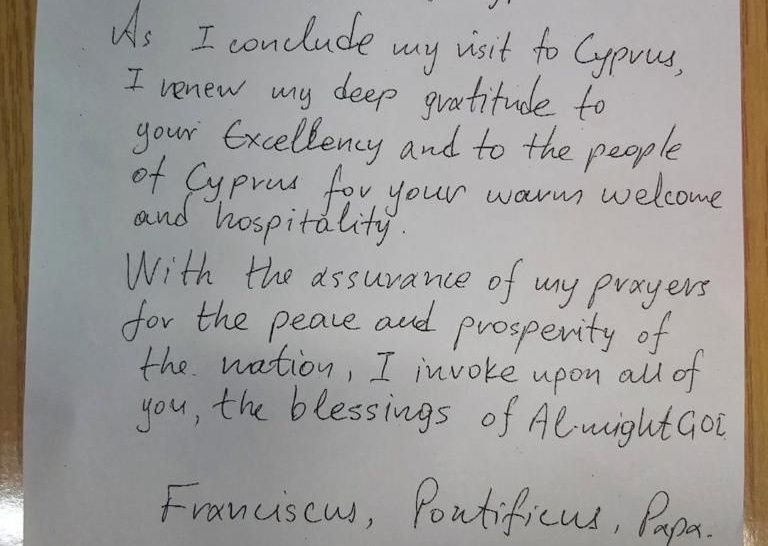 As I conclude my visit to Cyprus,
I renew my deep gratitude to
your Excellency and to the people
of Cyprus for your warm welcome
and hospitality.
With the assurance of my prayers
for the peace and prosperity of
the nation, I invoke upon all of
you, the blessings of Almight God
Franciscus, Pontificus, Papa.